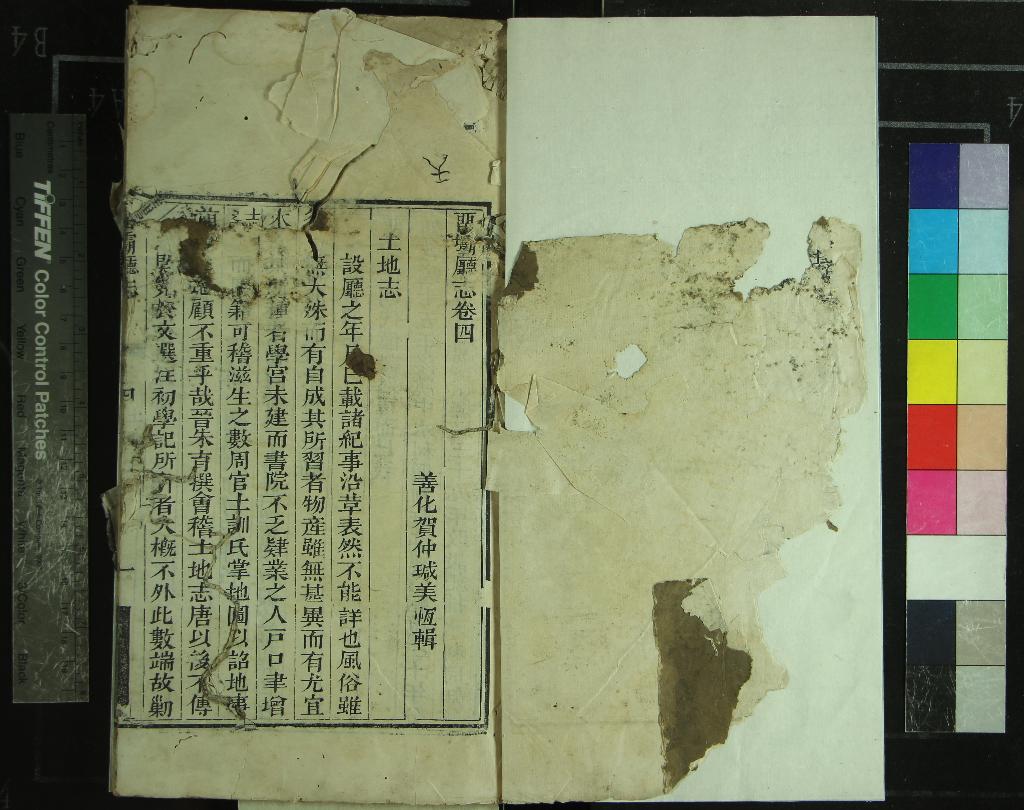 壩廳志卷四
善化賀仲瑊美恆輯
土地志
設廳之年已載諸紀事沿革表然不能詳也風俗雖
無大殊而有自成其所習者物產雖無甚異而有尤宜
者學宮未建而書院不乏肄業之人戶口聿增
籍可稽滋生之數周官土訓氏掌地圖以詔地事
顧不重乎哉晉朱育撰會稽土地志唐以後不傳
文選注初學記所引者大概不外此數端故劉
廳志
四
一
天
TIFFEN Color Control Patches
Blue
Cyan
Green
Yellow
Red
Magenta
White
3/Color
Black
B4
A4